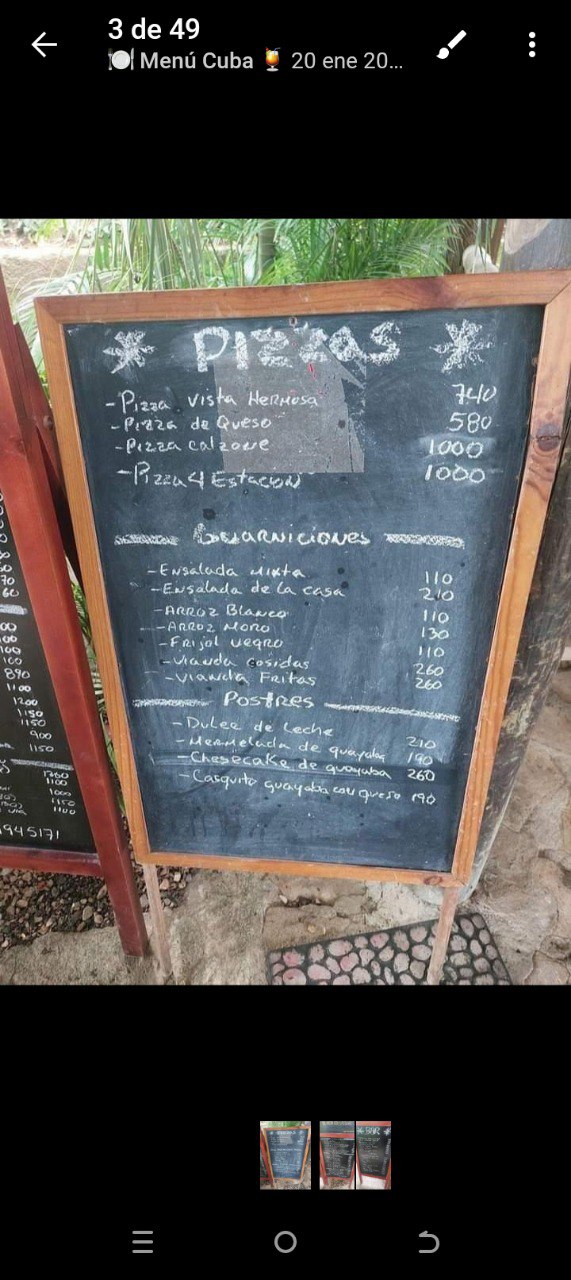 3 de 49
🍽 Menú Cuba 🍹 20 ene 20...
PIZZAS
- Pizza vista Hermosa 740
- Pizza de Queso 580
- Pizza calzone 1000
- Pizza 4 Estacion 1000
Guarniciones
- Ensalada mixta 110
- Ensalada de la casa 210
- Arroz Blanco 110
- Arroz Moro 130
- Frijol negro 110
- Vianda cosidas 260
- Vianda Fritas 260
Postres
- Dulce de leche 210
- Mermelada de guayaba 190
- Chesecake de guayaba 260
- Casquito guayaba con queso 190
70
890
1100
1200
1150
1150
900
1150
1100
1000
1150
1100
1945171
BAR